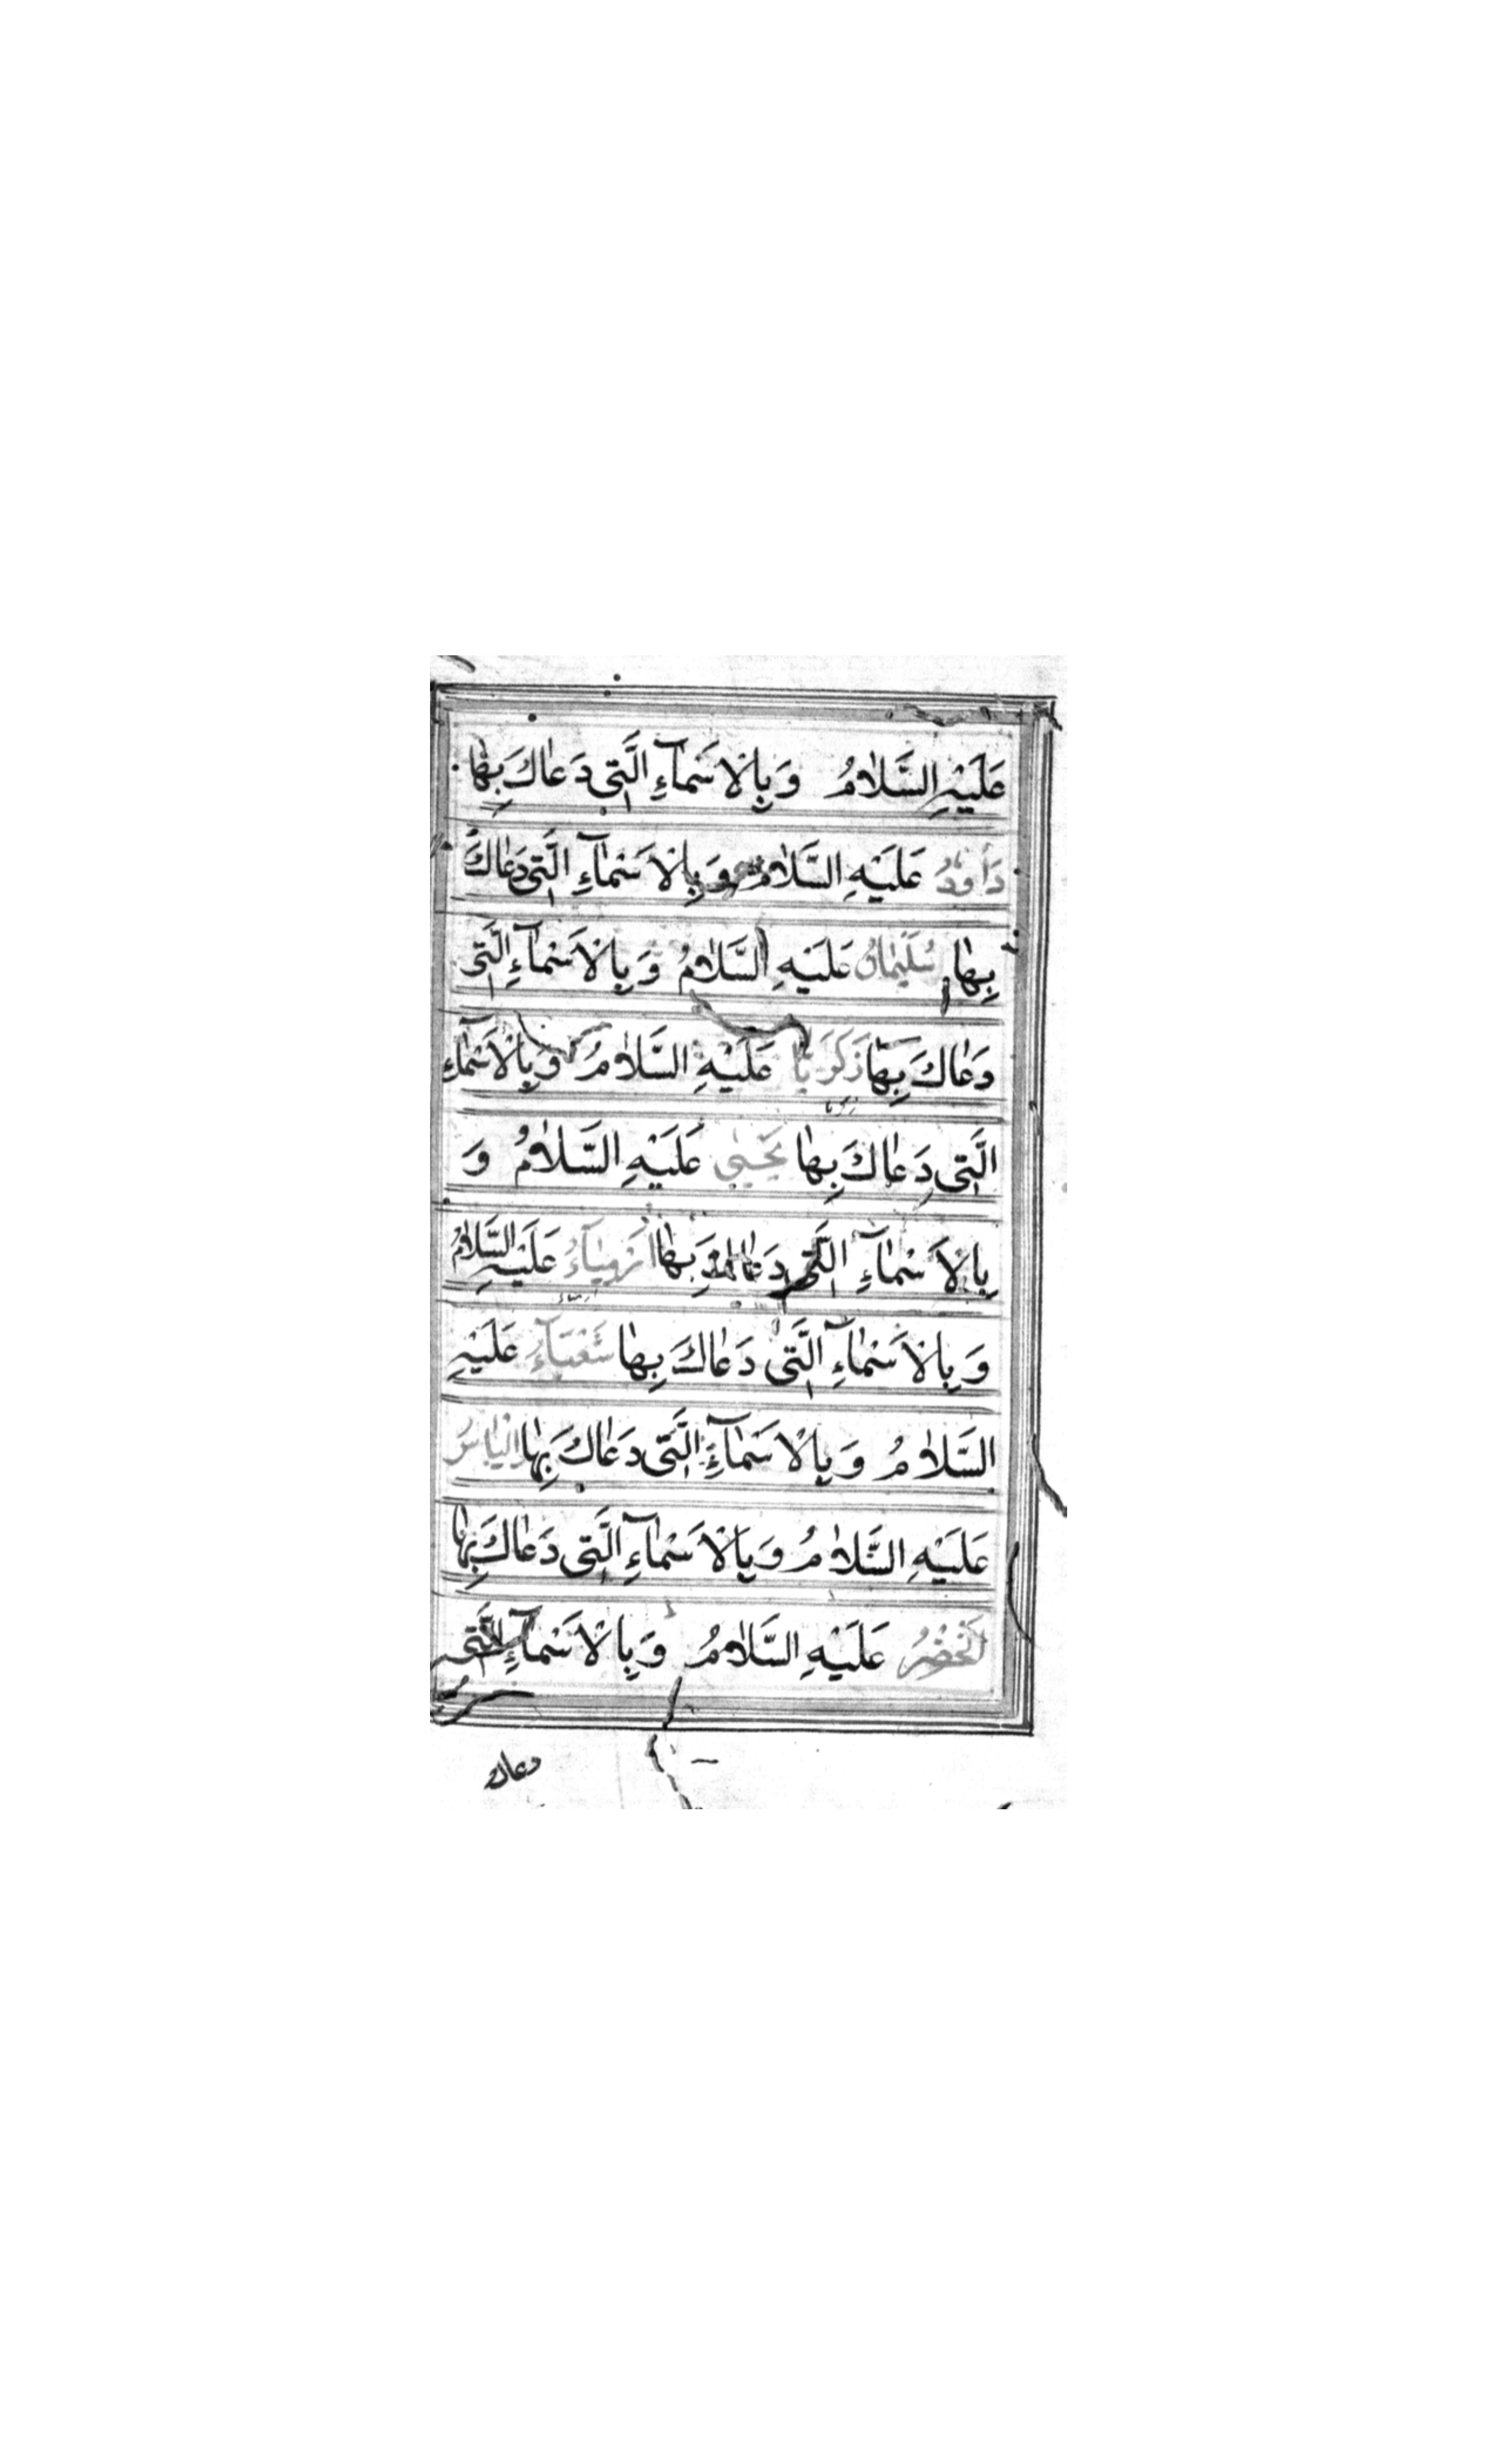 عَلَيْهِ السَّلَامُ وَبِالْاَسْمَآءِ الَّتِى دَعَاكَ بِهَا
دَاوُدُ عَلَيْهِ السَّلَامُ وَبِالْاَسْمَآءِ الَّتِى دَعَاكَ
بِهَا سُلَيْمَانُ عَلَيْهِ السَّلَامُ وَبِالْاَسْمَآءِ الَّتِى
دَعَاكَ بِهَا زَكَرِيَّا عَلَيْهِ السَّلَامُ وَبِالْاَسْمَآءِ
زكريا
الَّتِى دَعَاكَ بِهَا يَحْيٰي عَلَيْهِ السَّلَامُ وَ
بِالْاَسْمَآءِ الَّتِى دَعَاكَ بِهَا اَرْمِيَآءُ عَلَيْهِ السَّلَامُ
وَبِالْاَسْمَآءِ الَّتِى دَعَاكَ بِهَا شَعْيَآءُ عَلَيْهِ
السَّلَامُ وَبِالْاَسْمَآءِ الَّتِى دَعَاكَ بِهَا اِلْيَاسُ
عَلَيْهِ السَّلَامُ وَبِالْاَسْمَآءِ الَّتِى دَعَاكَ بِهَا
الْخَضِرُ عَلَيْهِ السَّلَامُ وَبِالْاَسْمَآءِ الَّتِى
دعاك